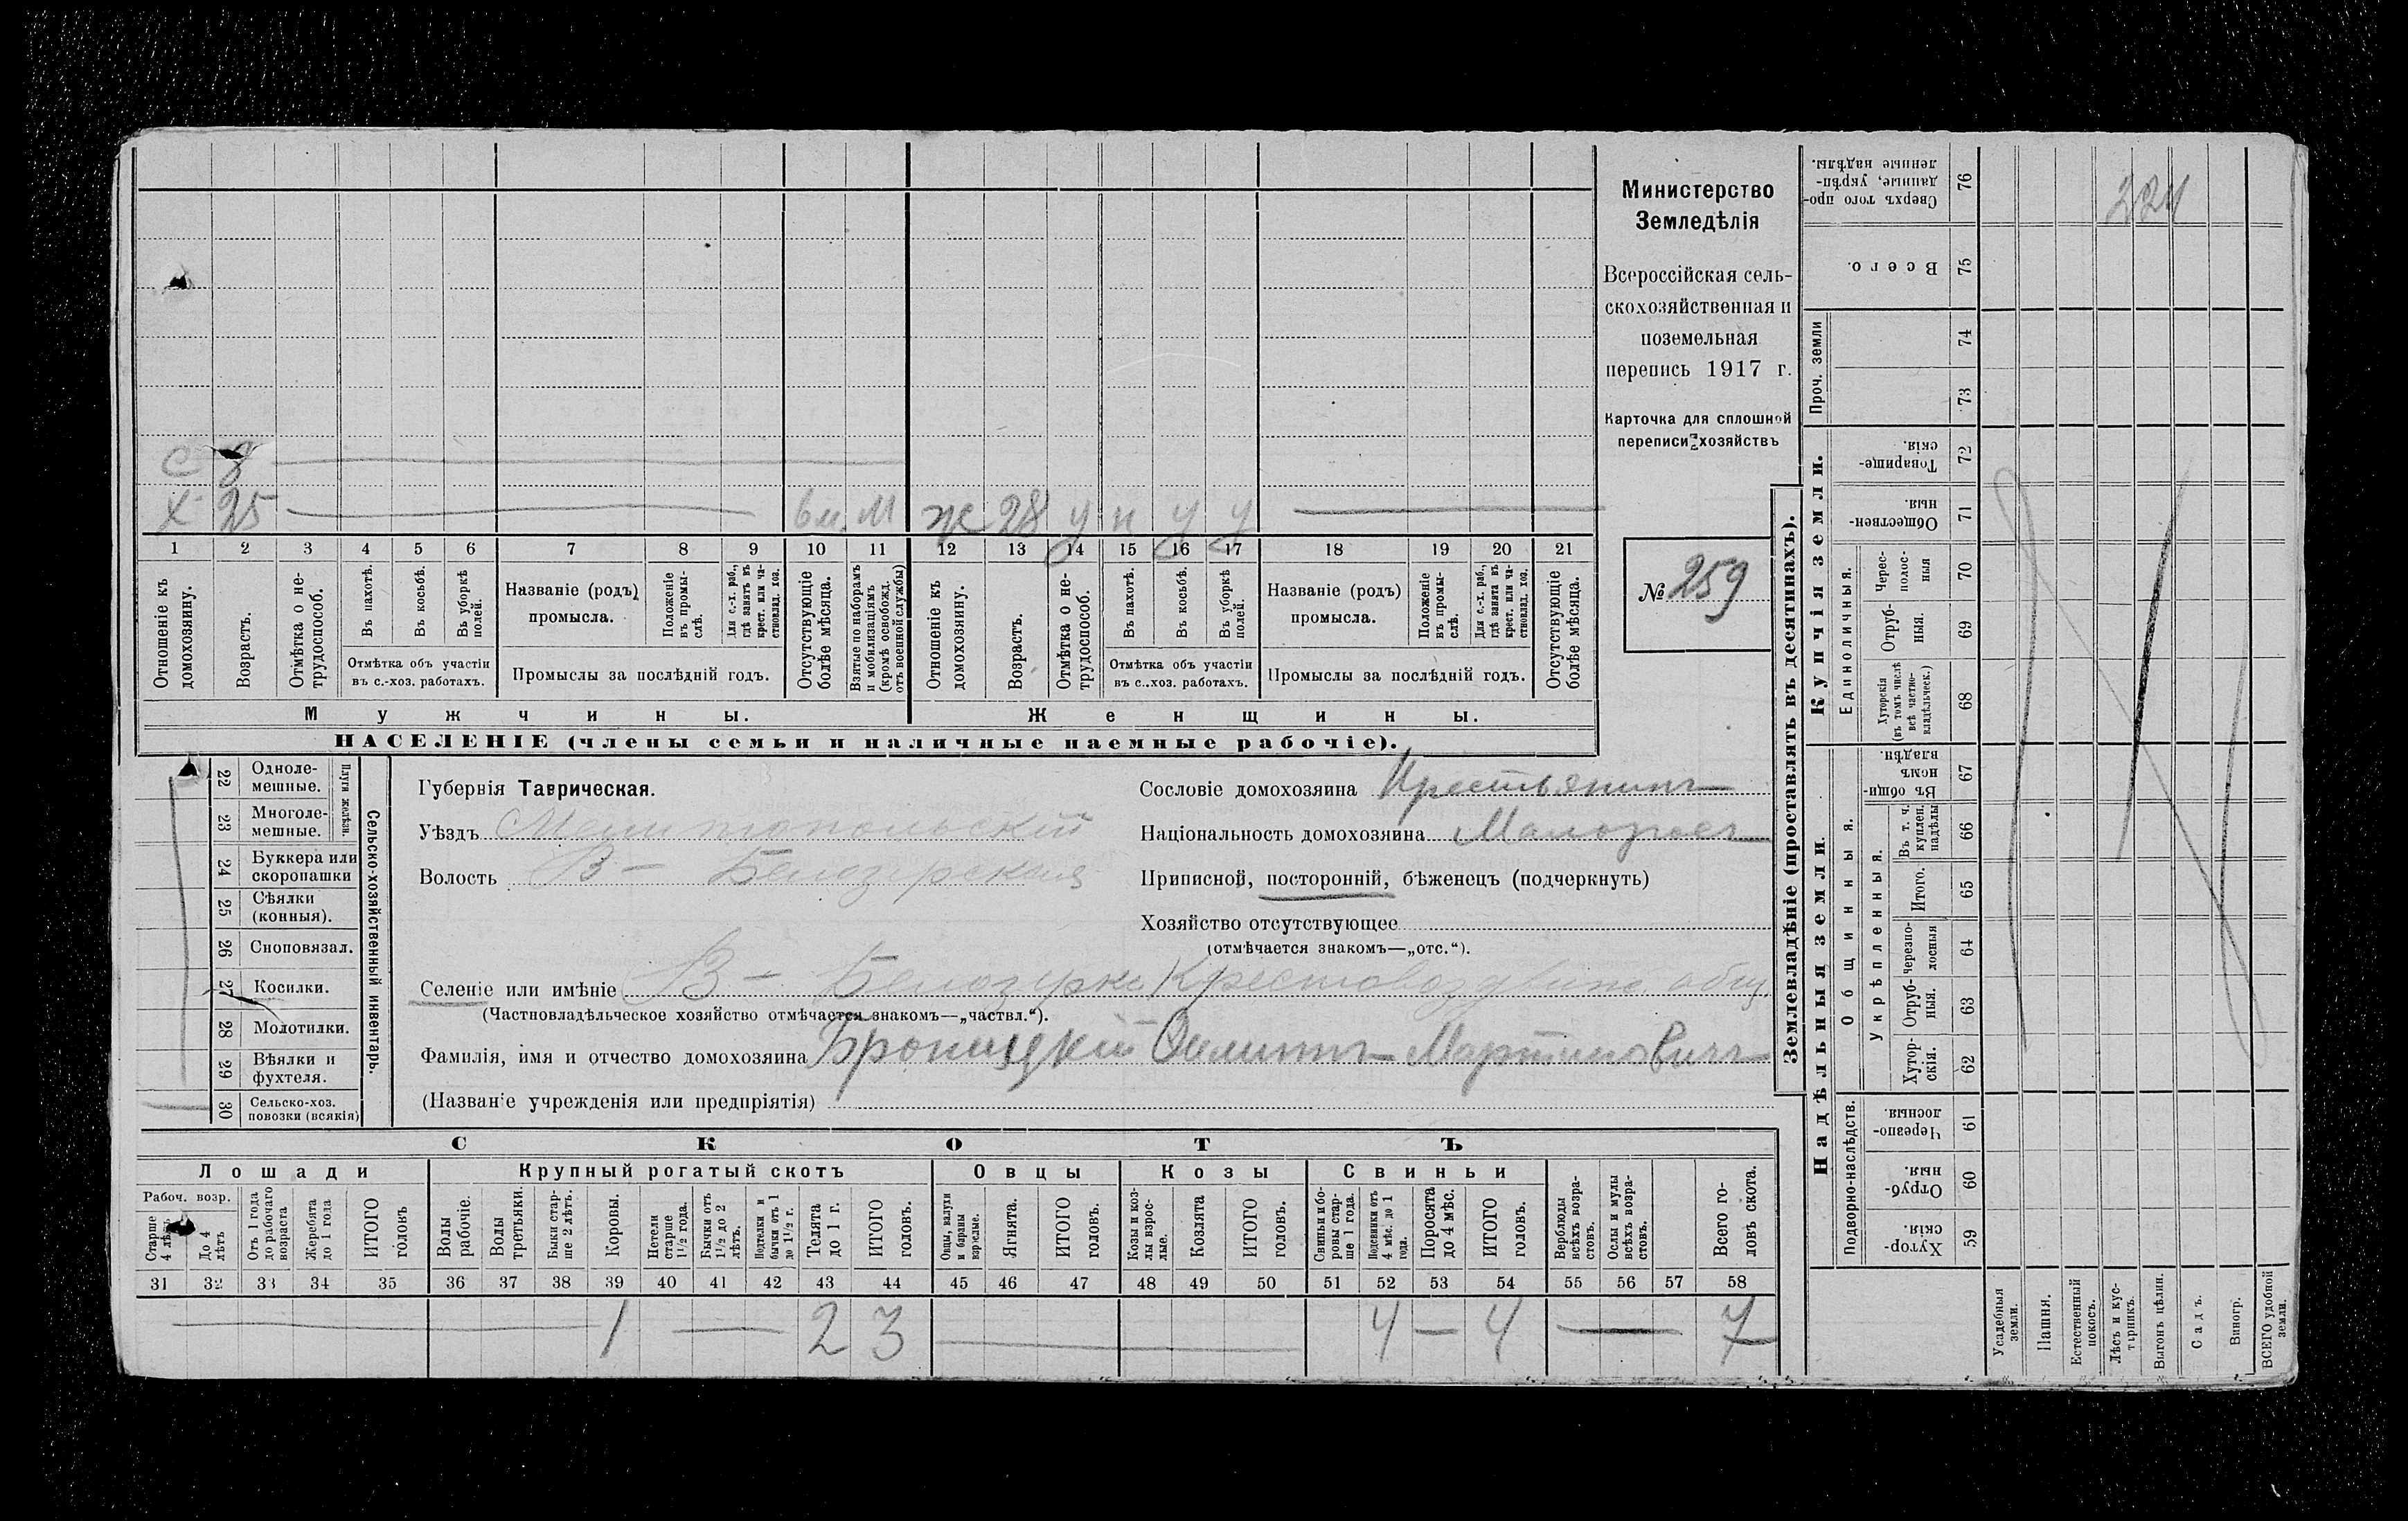 с 3
х 25 вм. М ж 28 у н у у
1 2 3 4 5 6 7 8 9 10 11 12 13 14 15 16 17 18 19 20 21
Отношеніе къ домохозяину.
Возрастъ.
Отмѣтка о не-трудоспособ.
Въ пахотѣ.
Въ косьбѣ.
Въ уборкѣ полей.
Отмѣтка объ участіи
въ с.-хоз. работахъ.
Названіе (родъ)
промысла.
Положеніе въ промы-слѣ.
Для с.-х. раб., гдѣ занятъ въ крест. или ча-стновлад. хоз.
Промыслы за послѣдній годъ.
Отсутствующіе болѣе мѣсяца.
Взятые по наборамъ и мобилизаціямъ (кромѣ освобожд. отъ военной службы)
Отношеніе къ домохозяину.
Возрастъ.
Отмѣтка о не-трудоспособ.
Въ пахотѣ.
Въ косьбѣ.
Въ уборкѣ полей.
Отмѣтка объ участіи
въ с..хоз. работахъ.
Названіе (родъ)
промысла.
Положеніе въ промы-слѣ.
Для с.-х. раб., гдѣ занята въ крест. или ча-стновлад. хоз.
Промыслы за послѣдній годъ.
Отсутствующіе болѣе мѣсяца.
Мужчины.
Женщины.
НАСЕЛЕНІЕ (члены семьи и наличные наемные рабочіе).
Министерство
Земледѣлія
Всероссійская сель-
скохозяйственная и
поземельная
перепись 1917 г.
Карточка для сплошной
переписи хозяйствъ
№ 259
22 Одноле-мешные.
23 Многоле-мешные.
Плуги желѣзн.
24 Буккера или скоропашки
25 Сѣялки (конныя).
26 Сноповязал.
27 Косилки.
28 Молотилки.
29 Вѣялки и фухтеля.
30 Сельско-хоз. повозки (всякія)
Сельско-хозяйственный инвентарь.
Губернія Таврическая.
Уѣздъ Мелитопольскій
Волость В- Белозерская
Сословіе домохозяина Крестьянинъ
Національность домохозяина Малоросъ
Приписной, посторонній, бѣженецъ (подчеркнуть)
Хозяйство отсутствующее
(отмѣчается знакомъ—„отс.“).
Селеніе или имѣніе В- Белозерка Крестовоздвиж. общ.
(Частновладѣльческое хозяйство отмѣчается знакомъ—„частвл.“).
Фамилія, имя и отчество домохозяина Броницкій Филиппъ Мартиновичъ
(Названіе учрежденія или предпріятія)
СКОТЪ
Лошади
Крупный рогатый скотъ
Овцы
Козы
Свиньи
Рабоч. возр.
Старше 4 лѣтъ
До 4 лѣтъ
Отъ 1 года до рабочаго возраста
Жеребята до 1 года
ИТОГО головъ
Волы рабочіе.
Волы третьяки.
Быки стар-ше 2 лѣтъ.
Коровы.
Нетели старше 1½ года.
Бычки отъ 1½ до 2 лѣтъ.
Подтелки и бычки отъ 1 до 1½ г.
Телята до 1 г.
ИТОГО головъ.
Овцы, валухи и бараны взрослые.
Ягнята.
ИТОГО головъ.
Козы и коз-лы взрос-лые.
Козлята
ИТОГО головъ.
Свиньи и бо-ровы стар-ше 1 года.
Подсвинки отъ 4 мѣс. до 1 года.
Поросята до 4 мѣс.
ИТОГО головъ.
Верблюды всѣхъ возра-стовъ.
Ослы и мулы всѣхъ возра-стовъ.
Всего го-ловъ скота.
31 32 33 34 35 36 37 38 39 40 41 42 43 44 45 46 47 48 49 50 51 52 53 54 55 56 57 58
1 2 3 4 — 4 — 7
Землевладѣніе (проставлять въ десятинахъ).
76 Сверхъ того про-данные, укрѣп-ленные надѣлы.
224
75 Всего.
Проч. земли
74
73
Купчія земли.
72 Товарище-скія.
71 Обществен-ныя.
Единоличныя.
70 Черес-полос-ныя
69 Отруб-ныя.
68 Хуторскія (въ томъ числѣ всѣ частно-владѣльческ.)
Надѣльныя земли.
Общинныя.
67 Въ общи-номъ владѣн.
Укрѣпленныя.
66 Въ т. ч. куплен. надѣлы
65 Итого.
64 черезпо-лосныя
63 Отруб-ныя.
62 Хутор-скія.
Подворно-наслѣдств.
61 Черезпо-лосныя.
60 Отруб-ныя.
59 Хутор-скія.
Усадебныя земли.
Пашня.
Естественный покосъ.
Лѣсъ и кус-тарникъ.
Выгонъ цѣлин.
Садъ.
Виногр.
ВСЕГО удобной земли.